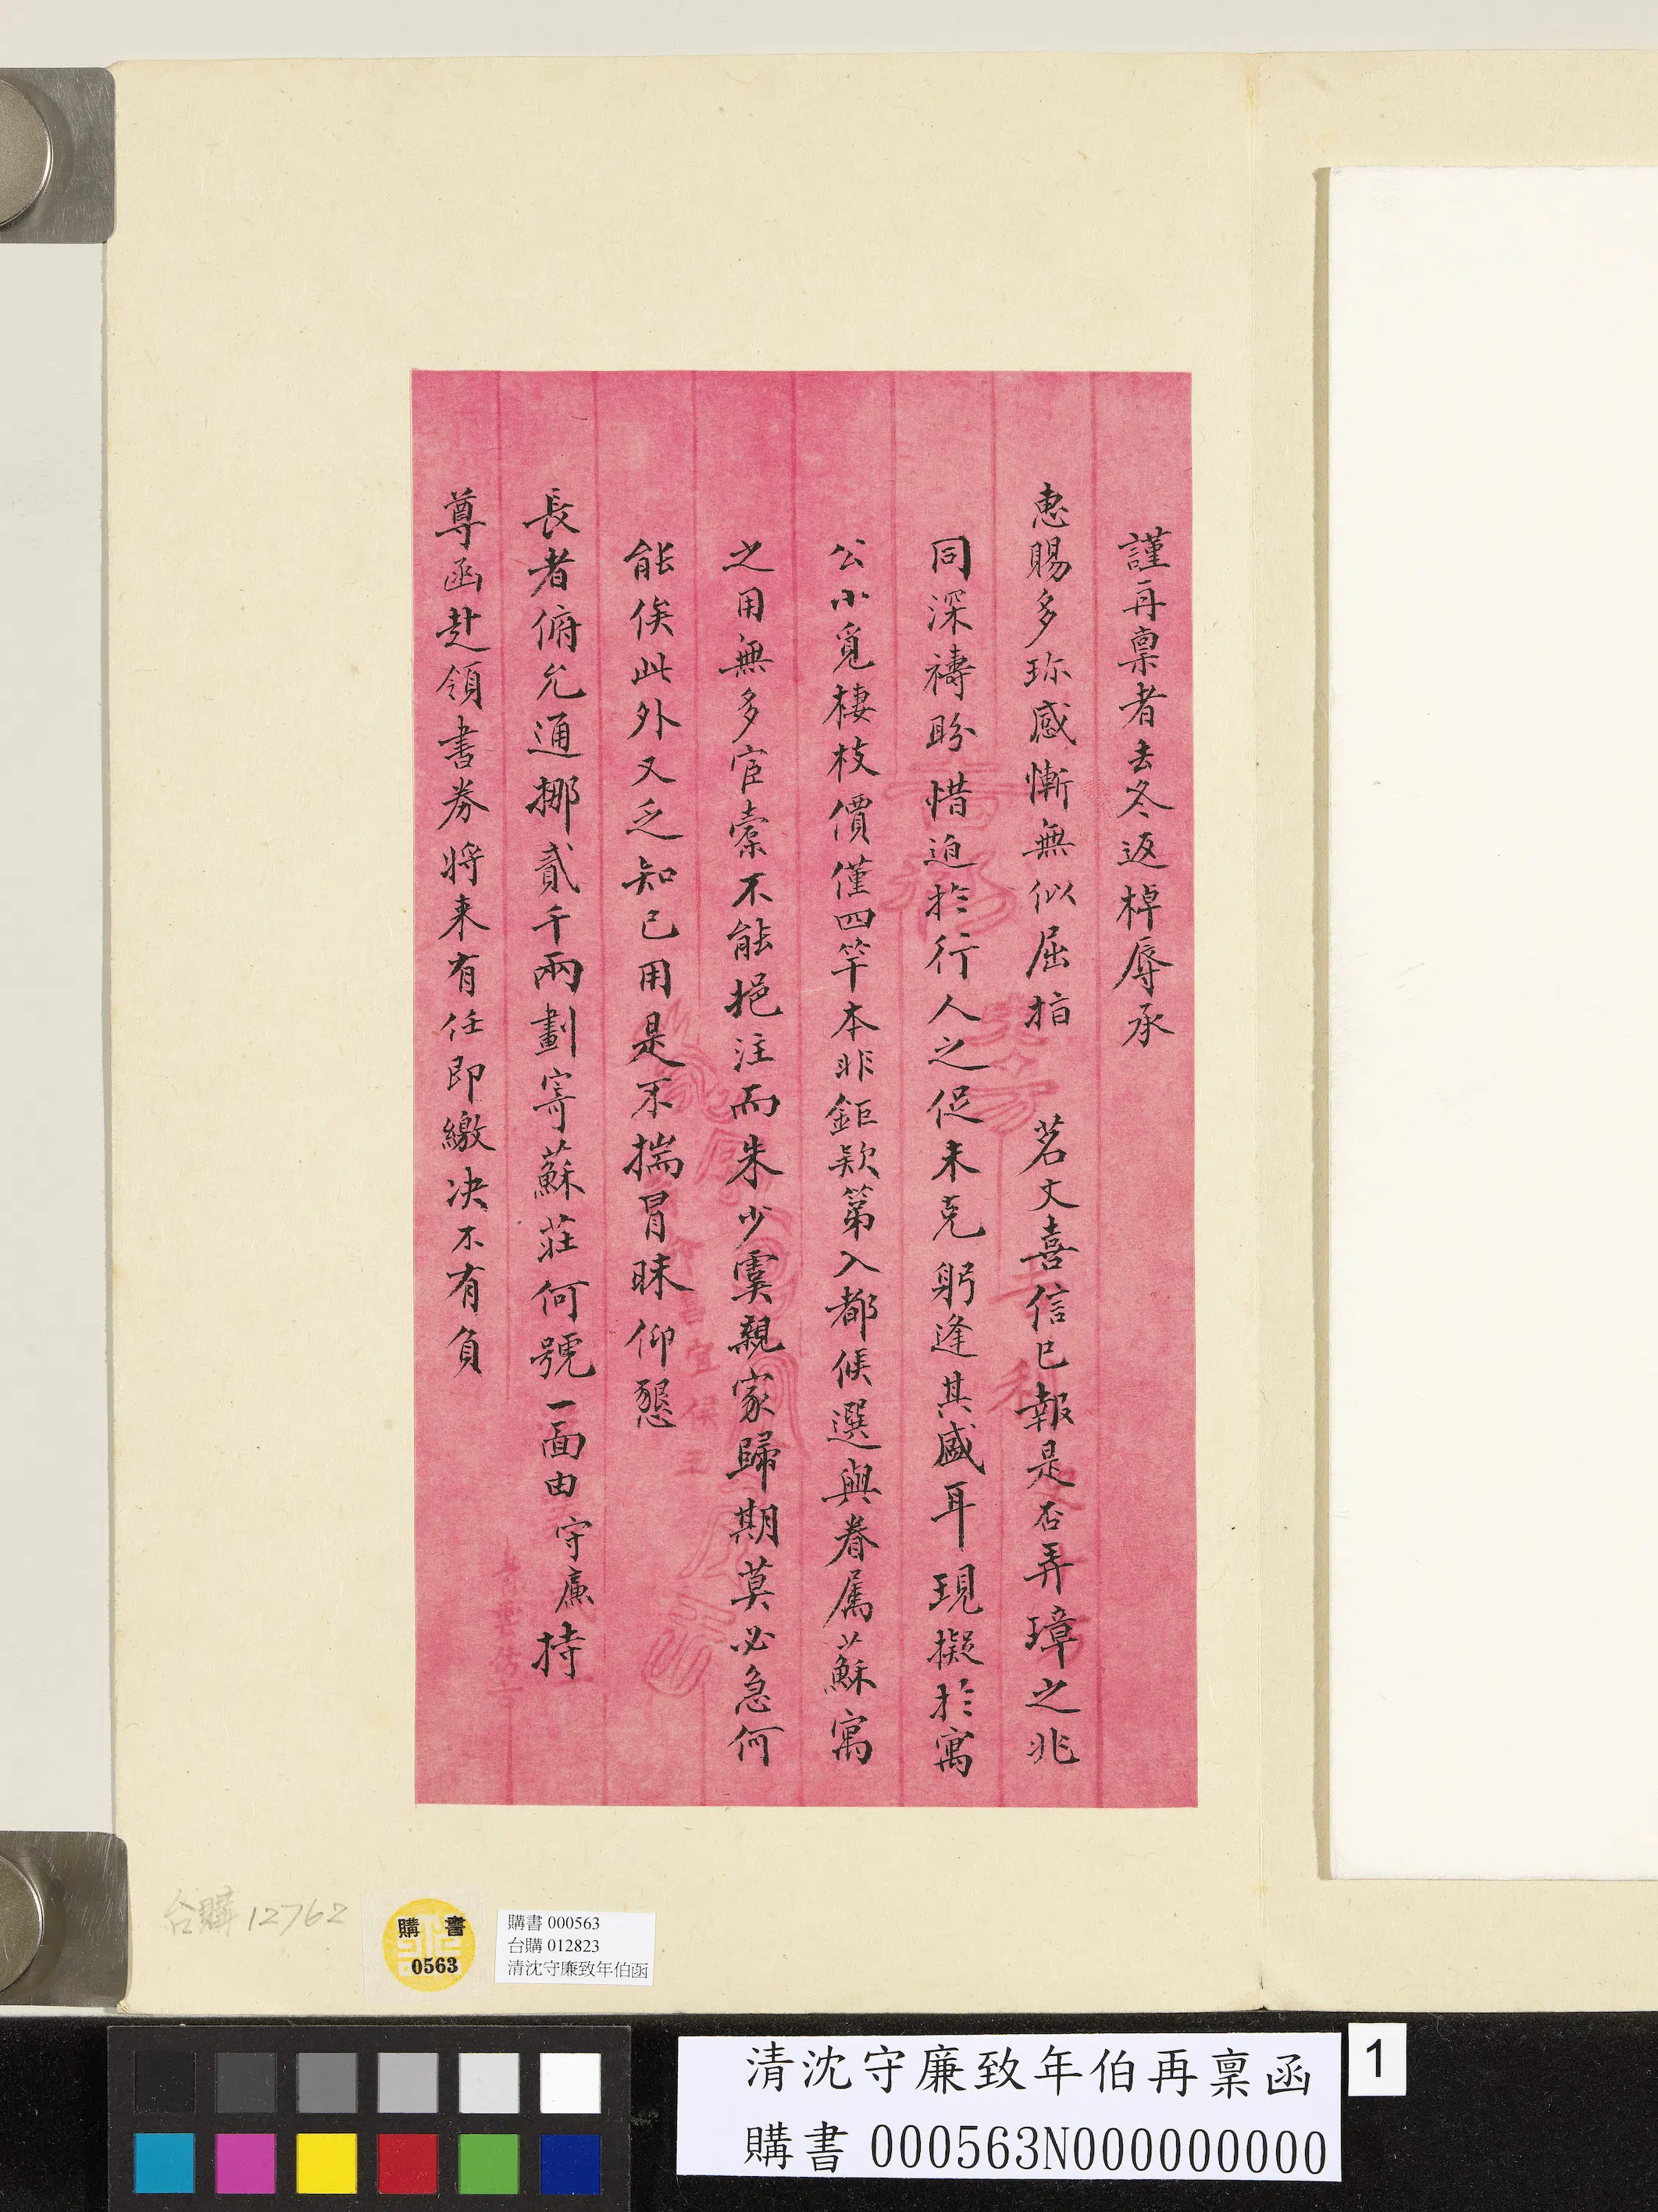 謹再稟者去冬返棹辱承
惠賜多珎感慚無似屈指　茗丈喜信已報是否弄璋之兆
同深禱盼惜迫於行人之促未克躬逢其盛耳現擬於寓
公小覓棲枝價僅四竿本非鉅款第入都候選與眷属蘇寓
之用無多宦橐不能挹注而朱少雲親家歸期莫必急何
能俟此外又乏知己用是不揣冒昧仰懇
長者俯允通挪貳千兩劃寄蘇莊何號一面由守廉持
尊函赴領書券將来有任即繳决不有負
台購12762
購書
0563
購書 000563
台購 012823
清沈守廉致年伯函
清沈守廉致年伯再稟函
購書 000563N000000000
1